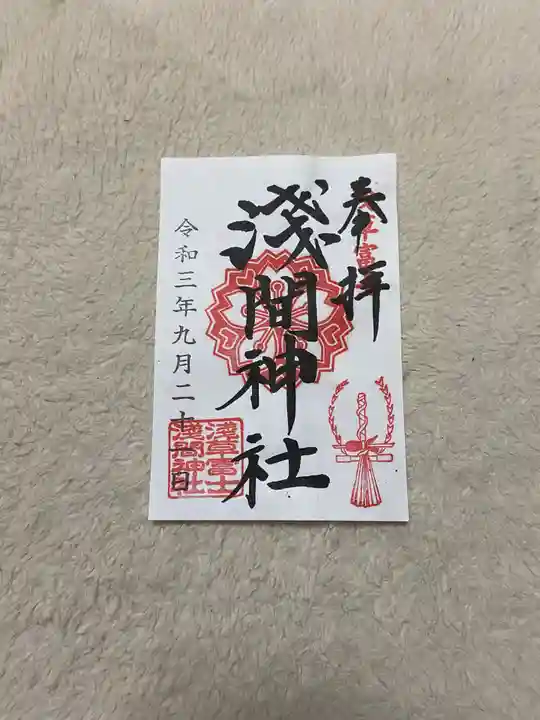 奉拝
淺間神社
淺草富士
淺間神社
令和三年九月二十日